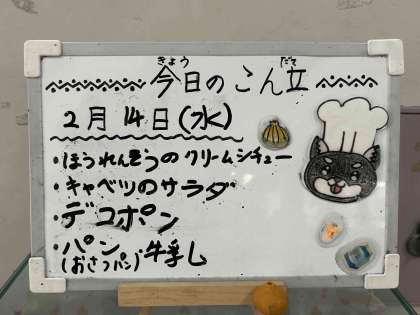 きょう だて
今日のこん立
2月14日(水)
・ほうれんそうのクリームシチュー
・キャベツのサラダ
・デコポン
・パン 牛乳
(おさつパン)